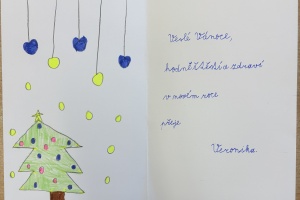 Veselé Vánoce,
hodně štěstí a zdraví
v novém roce
přeje
Veronika